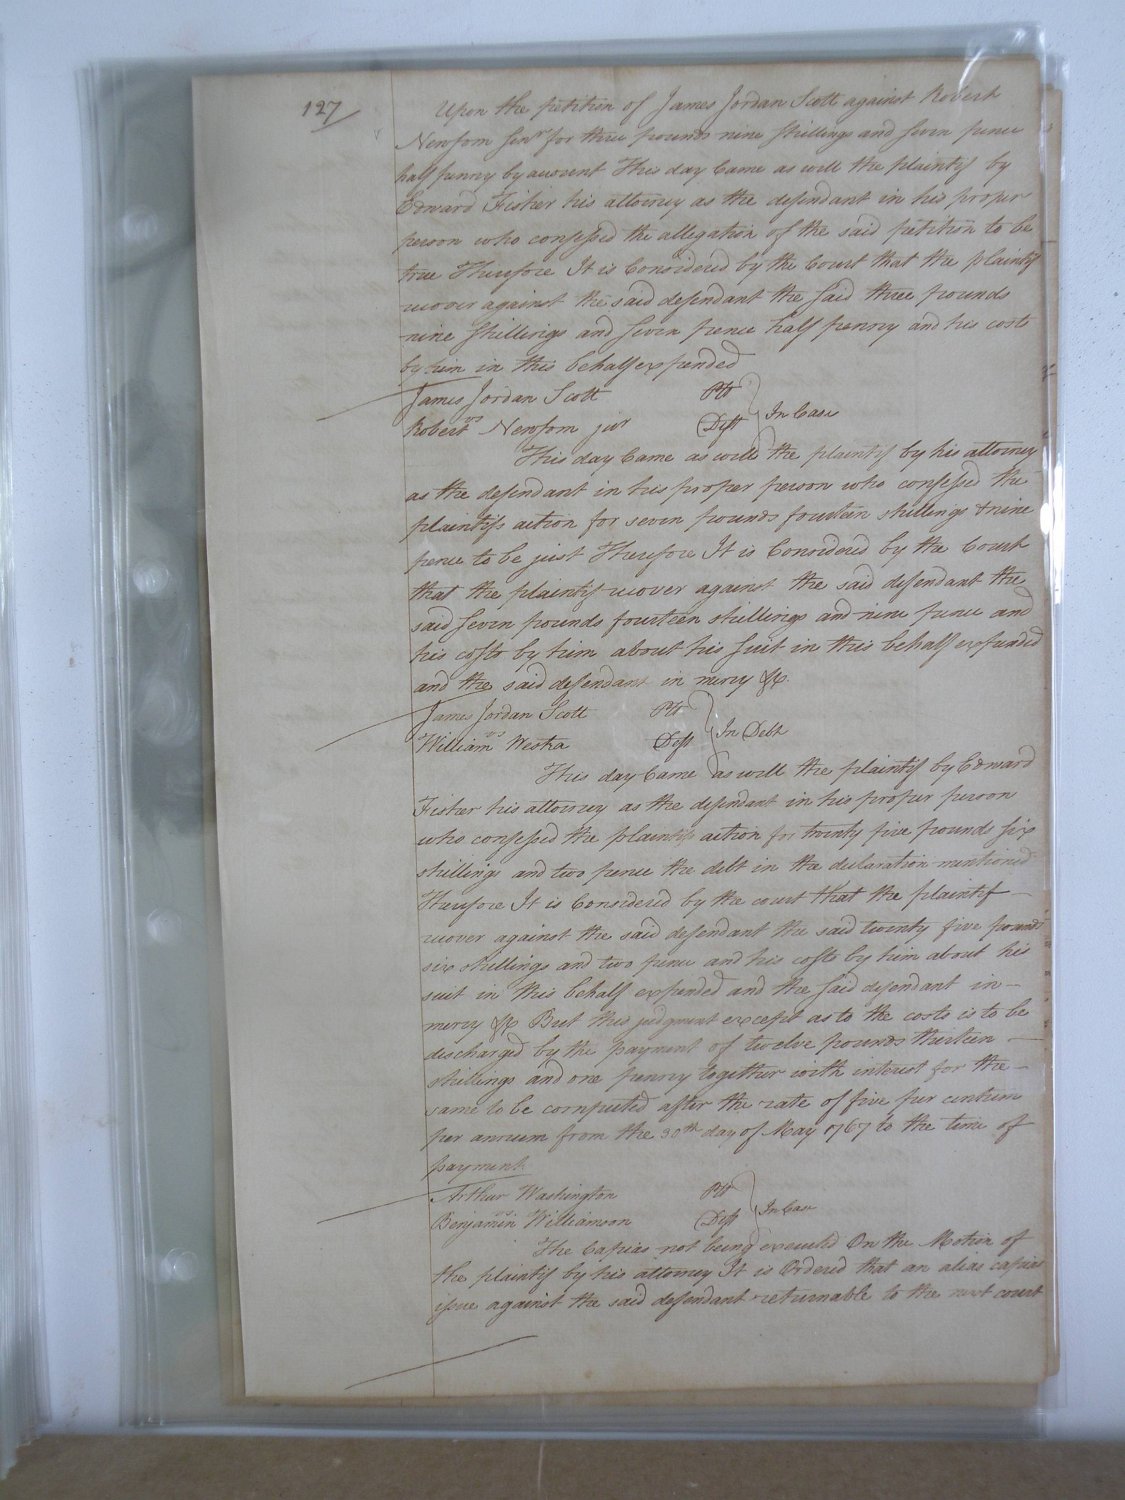 127
Upon the petition of James Jordan Scott against Robert
Newsom Senr for three pounds nine shillings and seven pence
half penny by account This day Came as well the plaintif by
Edward Fisher his attorney as the defendant in his proper
person who confessed the allegation of the said petition to be
true Therefore It is Considered by the Court that the plaintif
recover against the said defendant the said three pounds
nine shillings and seven pence half penny and his costs
by him in this behalf expended
James Jordan Scott Plt
vs In Case
Robert Newsom jur Deft
This day Came as well the plaintif by his attorney
as the defendant in his proper person who confessed the
plaintifs action for seven pounds fourteen shillings & nine
pence to be just Therefore It is Considered by the Court
that the plaintif recover against the said defendant the
said seven pounds fourteen shillings and nine pence and
his costs by him about his suit in this behalf expended
and the said defendant in mercy &c
James Jordan Scott Plt
vs In Debt
William Westra Deft
This day Came as well the plaintif by Edward
Fisher his attorney as the defendant in his proper person
who confessed the plaintifs action for twenty five pounds six
shillings and two pence the debt in the declaration mentioned
Therefore It is Considered by the court that the plaintif
recover against the said defendant the said twenty five pounds
six shillings and two pence and his costs by him about his
suit in this behalf expended and the said defendant in
mercy &c But this judgment except as to the costs is to be
discharged by the payment of twelve pounds thirteen
shillings and one penny together with interest for the
same to be computed after the rate of five per centum
per annum from the 30th day of May 1767 to the time of
payment
Arthur Washington Plt
vs In Case
Benjamin Williamson Deft
The Capias not being executed On the Motion of
the plaintif by his attorney It is Ordered that an alias capias
issue against the said defendant returnable to the next court